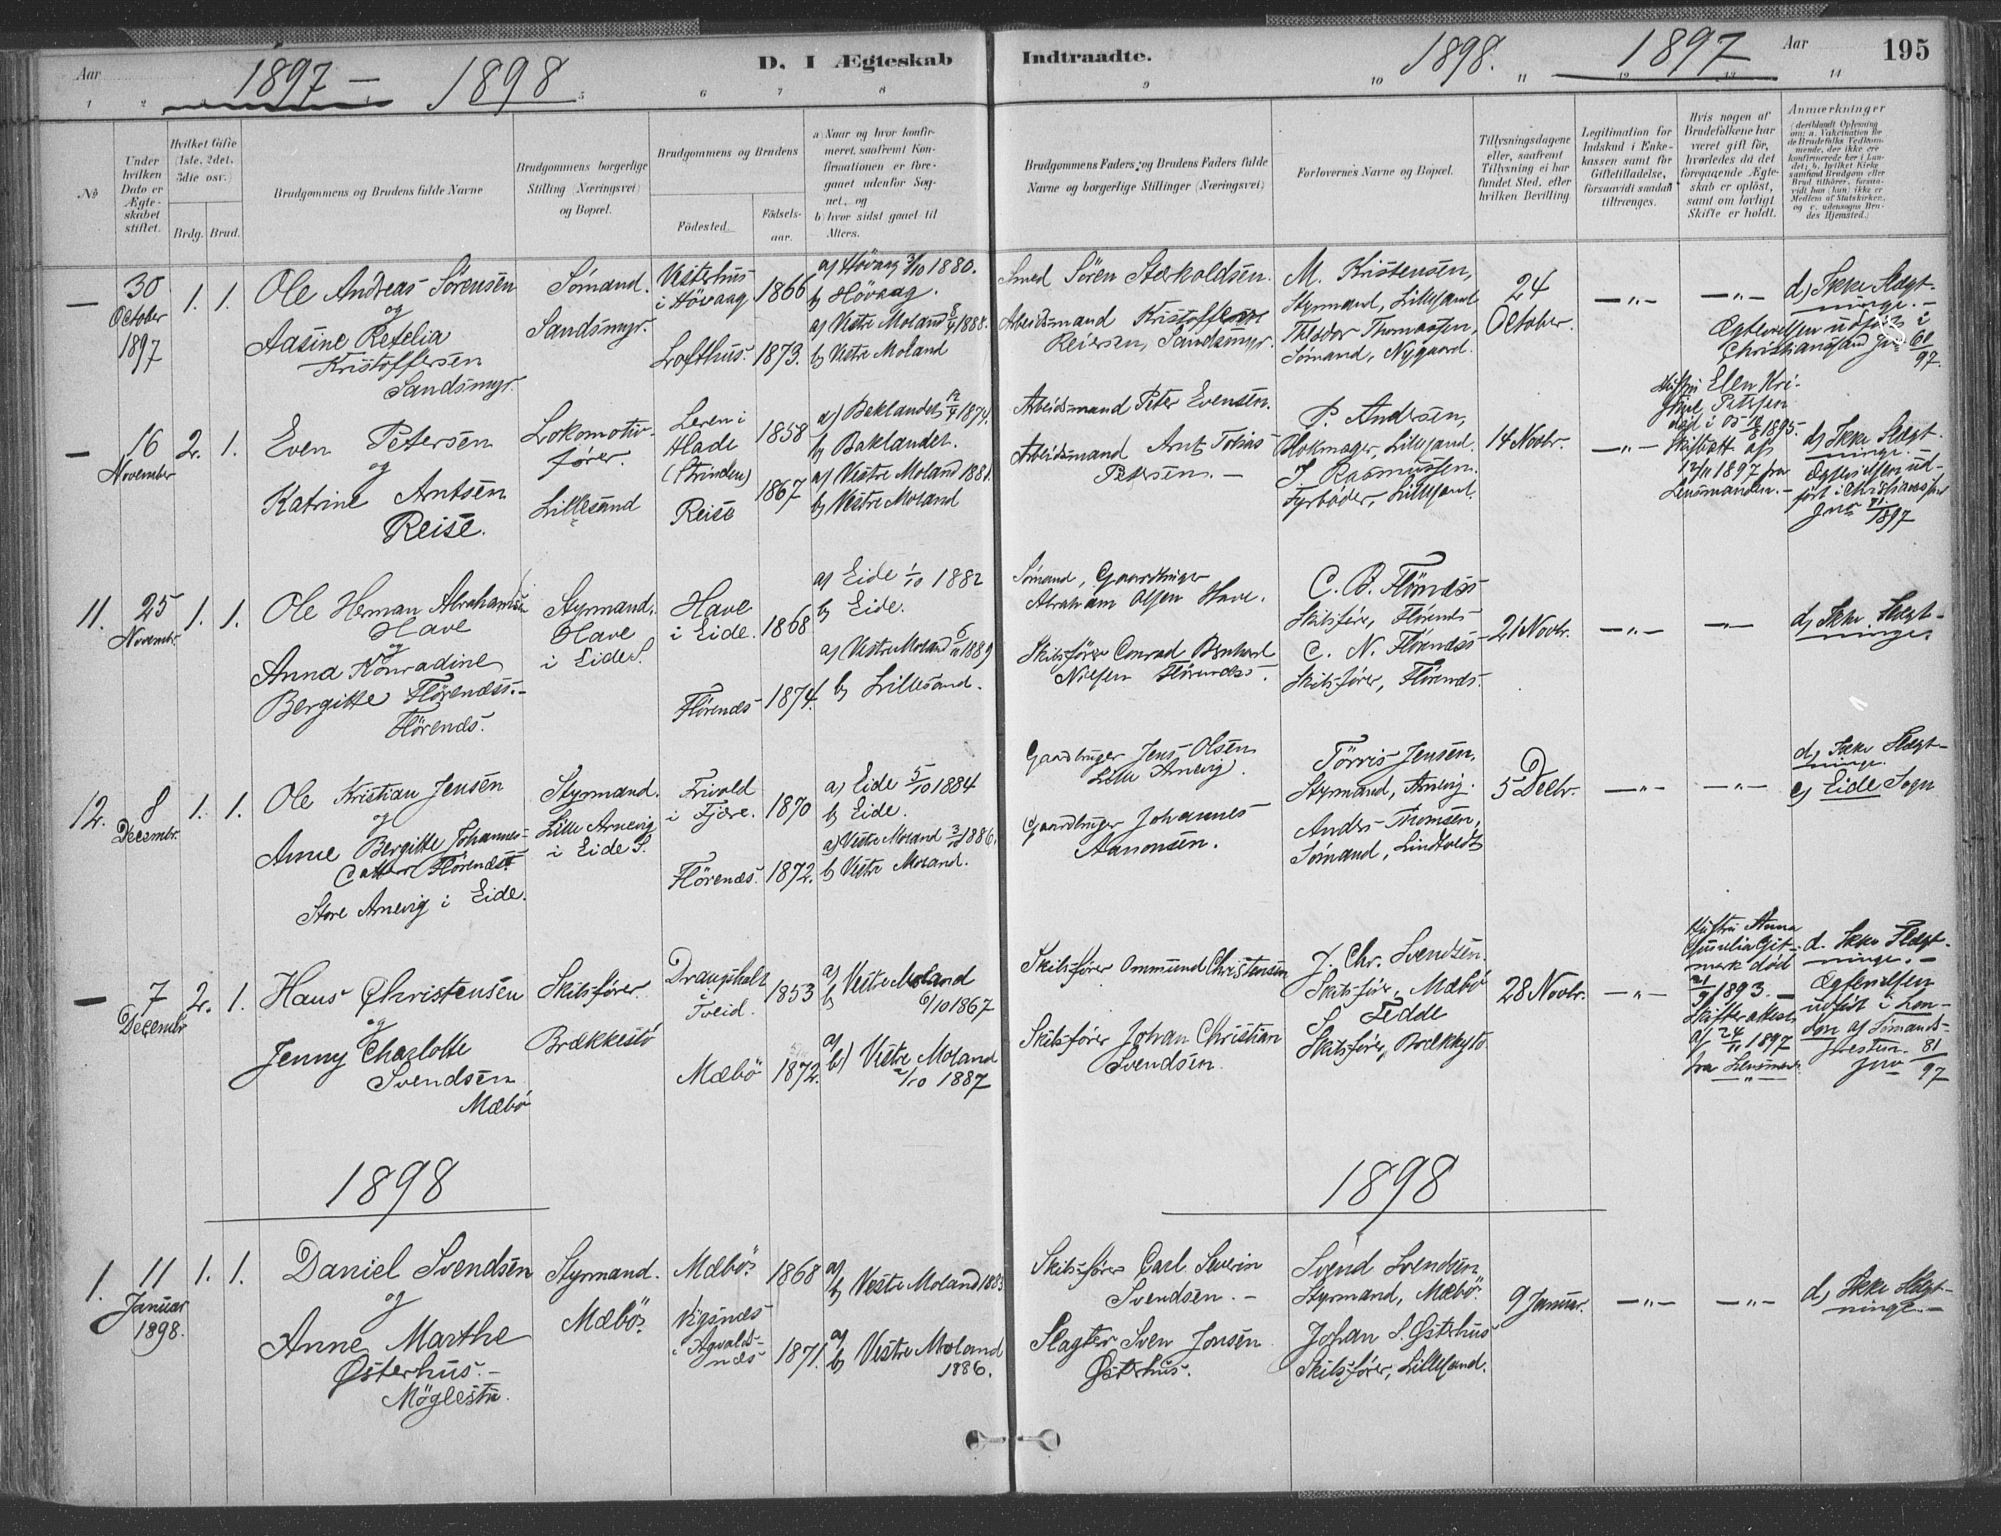 Aar
1897 – 1898
D. I Ægteskab
Indtraadte.
1898. 1897
Aar
195
1 2 3 4 5 6 7 8 9 10 11 12 13 14
No
Under hvilken Dato er Ægteskabet stiftet.
Hvilket Gifte (1ste, 2det, 3die osv.)
Brdg. Brud.
Brudgommens og Brudens fulde Navne
Brudgommens borgerlige Stilling (Næringsvei) og Bopæl.
Brudgommens og Brudens
Fødested.
Fødselsaar.
a) Naar og hvor konfirmeret, saafremt Konfirmationen er foregaaet udenfor Sognet, og
b) hvor sidst gaaet til Alters.
Brudgommens Faders og Brudens Faders fulde Navne og borgerlige Stillinger (Næringsvei)
Forlovernes Navne og Bopæl.
Tillysningsdagene eller, saafremt Tillysning ei har fundet Sted, efter hvilken Bevilling.
Legitimation for Indskud i Enkekassen samt for Giftetilladelse, forsaavidt saadan tiltrænges.
Hvis nogen af Brudefolkene har været gift før, hvorledes da det foregaaende Ægteskab er opløst, samt om lovligt Skifte er holdt.
Anmærkninger
(deriblandt Oplysning om: a. Vakcination for de Brudefolks Vedkommende, der ikke ere konfirmerede her i Landet; b. hvilket Kirkesamfund Brudgom eller Brud tilhører, forsaavidt han (hun) ikke er Medlem af Statskirken, og c. udensogns Brudes Hjemsted.)
— 30 October 1897
1. 1.
Ole Andreas Sørensen
og
Aasine Refelia
Kristoffersen
Sandsmyr.
Sømand.
Sandsmyr.
Vesterhus
i Høvaag
1866
Lofthus. 1873.
a) Høvaag 3/10 1880.
b) Høvaag.
a) Vestre Moland 1888.
b) Vestre Moland
Smed Sören Stærkoldsen.
Arbeidsmand Kristoffer
Reiersen, Sandsmyr.
M. Kristensen,
Styrmand, Lillesand
Theodor Thomassen,
Sømand, Nygaard.
24
October.
— " —
— " —
d) Ikke Slægt-
ninge. —
Ægtevielsen udført i
Christianssand Jno 61/97.
— 16 November
2. 1.
Even Petersen
og
Katrine Antsen
Reise.
Lokomotiv-
fører.
Lillesand
Leren i
Hlade
(Strinden)
1858
Reise
1867
a) Baklandet 1874.
b) Baklandet.
a) Vestre Moland 1881.
b) Vestre Moland
Arbeidsmand Peter Evensen.
Arbeidsmand Arnt Tobias
Petersen. —
P. Andersen,
Blokmager, Lillesand.
J. Rasmussen.
Fyrbøder, Lillesand.
14 Novbr.
— " —
Hustru Ellen Kri-
stine Petersen
død 1895.
Skifteatt. af
12/11 1897 fra
Lensmanden. —
d) Ikke Slægt-
ninge. —
Ægtevielsen ud-
ført i Christianssand
Jno 71/1897
11. 25 Novembr.
1. 1.
Ole Herman Abrahamsen
Have
og
Anna Konradine
Bergitte Flörenæss. –
Flörenæs.
Styrmand.
Have
i Eide S.
Have
i Eide. 1868
Flörenæs 1874.
a) Eide 1/10 1882
b) Eide.
a) Vestre Moland 1889
b) Lillesand.
Sømand, Gaardbruger
Abraham Olsen Have.
Skibsfører Conrad Bernhard
Nielsen Flörenæss.
C. B. Flörnæss
Skibsfører, Flörenæs
C. N. Flörenæss
Skibsfører, Flörenæs.
21 Novbr.
— " —
— " —
d) Ikke Slægt-
ninge
12. 8 Decembr.
1. 1.
Ole Kristian Jensen
og
Anne Bergitte Johannes-
datter Flörenæs.
Store Arnevig i Eide.
Styrmand.
Lille Arnevig
i Eide S.
Frivold
i Fjære. 1870
Flörenæs. 1872.
a) Eide 5/10 1884
b) Eide.
a) Vestre Moland 3/10 1886.
b) Vestre Moland.
Gaardbruger Jens Olsen
Lille Arnevig.
Gaardbruger Johannes
Aanonsen.
Törris Jensen.
Styrmand, Arnevig.
Anders Thomsen,
Sømand, Lindtvedt
5 Decbr.
— " —
— " —
d) Ikke Slægt-
ninge.
c) Eide Sogn
— 7 Decembr
2. 1.
Hans Christensen
og
Jenny Charlotte
Svendsen
Mæbö
Skibsfører.
Brækkestö
Drangsholt
i
Tveid. 1853
Mæbö 1872.
a) Vestre Moland
b) 6/10 1867
a)
b) Vestre Moland
2/10 1887
Skibsfører Ommund Christensen
Skibsfører Johan Christian
Svendsen.
J. Chr. Svendsen.
Skibsfører, Mæbö
S. Fedde
Skibsfører, Brækkestö
28 Novbr.
— " —
Hustru Anna
Gunelia Git-
mark død
21/9 1893. —
Skifteattest
af 24/11 1897
fra Lensmand.
d. Ikke Slægt-
ninge. —
Ægtevielsen
udført i Lon-
don af Sømands-
presten.
Jno 81/97
1898
1898
1. 11 Januar 1898.
1. 1.
Daniel Svendsen
og
Anne Marthe
Østerhus. —
Möglestu.
Styrmand.
Mæbö.
Mæbö. 1868
Vigsnæs
i Agvalds-
næs 1871.
a)
b) Vestre Moland 1883
a)
b) Vestre Moland
1886.
Skibsfører Carl Severin
Svendsen. —
Slagter Sven Jonsen
Østerhus.
Svend Svendsen
Styrmand, Mæbö.
Johan S. Østerhus
Skibsfører, Lillesand.
9 Januar.
— " —
— " —
d) Ikke Slægt-
ninge. —